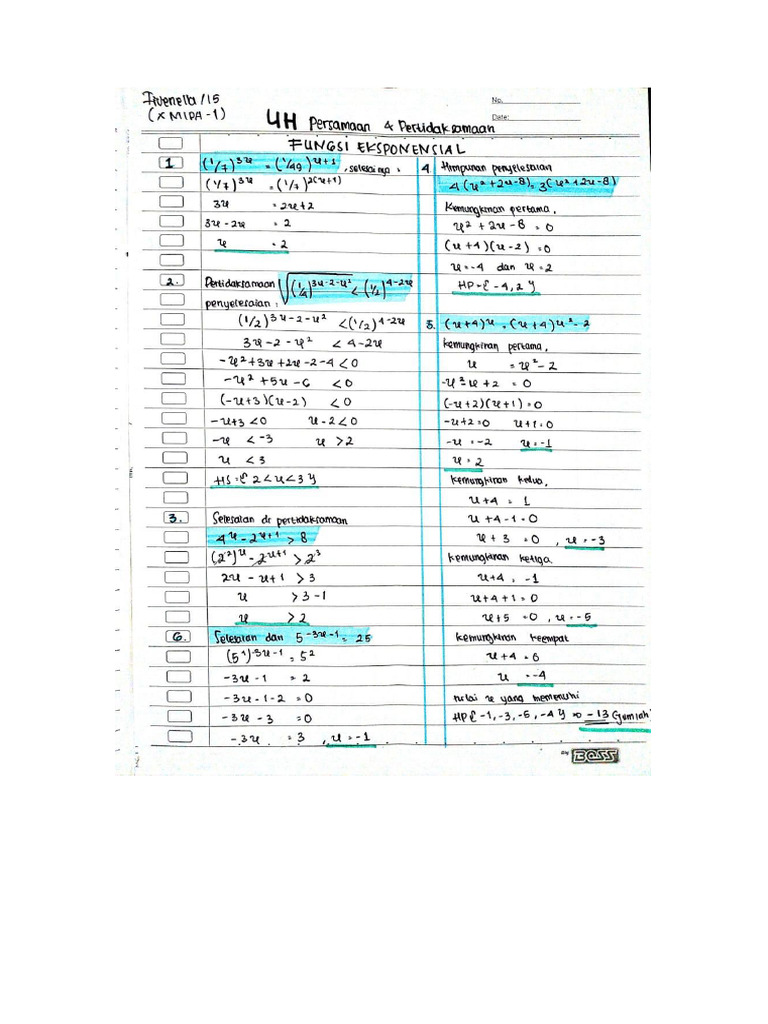 Ivenella/15
(X MIPA-1)
No.
Date:
UH Persamaan & Pertidaksamaan
FUNGSI EKSPONENSIAL
1 (1/7)^3x = (1/49)^x+1, selesainya :
(1/7)^3x = (1/7)^2(x+1)
3x = 2x+2
3x - 2x = 2
x = 2
2. Pertidaksamaan √(1/4)^3x-2-x² < (1/2)^4-2x
penyelesaian :
(1/2)^3x-2-x² < (1/2)^4-2x
3x - 2 - x² < 4-2x
-x² + 3x + 2x - 2 - 4 < 0
-x² + 5x - 6 < 0
(-x+3)(x-2) < 0
-x+3 < 0 x-2 < 0
-x < -3 x > 2
x < 3
HS = { 2 < x < 3 }
3. Selesaian dr pertidaksamaan
4^x - 2^x+1 > 8
(2²)^x - 2^x+1 > 2³
2x - x+1 > 3
x > 3-1
x > 2
6. Selesaian dari 5^-3x-1 = 25
(5^1)^-3x-1 = 5²
-3x - 1 = 2
-3x - 1 - 2 = 0
-3x - 3 = 0
-3x = 3, x = -1
4. Himpunan penyelesaian
4^(x²+2x-8) = 3^(x²+2x-8)
Kemungkinan pertama,
x² + 2x - 8 = 0
(x+4)(x-2) = 0
x = -4 dan x = 2
HP = { -4, 2 }
5. (x+4)^x = (x+4)^x²-2
kemungkinan pertama,
x = x² - 2
-x² x + 2 = 0
(-x+2)(x+1) = 0
-x+2=0 x+1=0
-x = -2 x = -1
x = 2
kemungkinan kedua,
x+4 = 1
x+4-1=0
x+3 = 0, x = -3
kemungkinan ketiga,
x+4 = -1
x+4+1=0
x+5 = 0, x = -5
kemungkinan keempat
x+4 = 0
x = -4
nilai x yang memenuhi
HP { -1, -3, -5, -4 } => -13 (jumlah)
BOSS